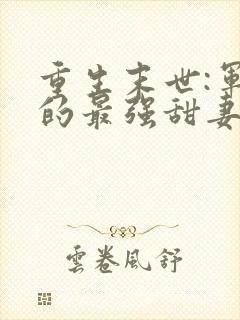 重生末世:軍
的最强甜妻
雲卷風舒